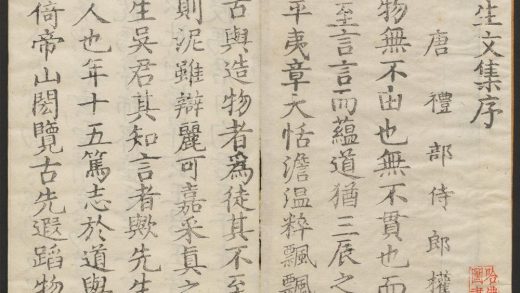 生文集序
唐禮部侍郎權
物無不由也無不貫也而
至言言而蘊道猶三辰之
平夷章大恬澹溫粹飄飄
古與造物者爲徒其不至
則泥雖辯麗可嘉采真之
生吳君其知言者歟先生
人也年十五篤志於道與
倚帝山閎覽古先遐蹈物